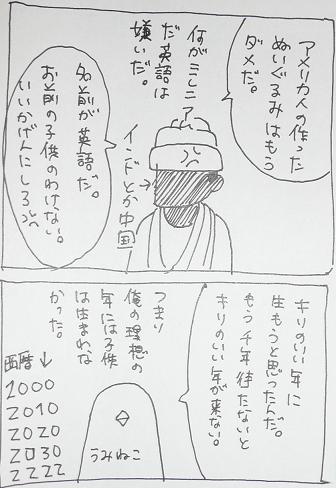 アメリカ人の作った
ぬいぐるみはもう
ダメだ。
何がミシニアだ
英語は
嫌いだ。
名前が英語だ。
お前の子供のわけない。
いいかげんにしろ
インドとか中国
キリのいい年に
生もうと思ったんだ。
もう千年待たないと
キリのいい年が来ない。
つまり
俺の理想の
年には子供
は生まれな
かった。
うみねこ
西暦↓
2000
2010
2020
2030
2222